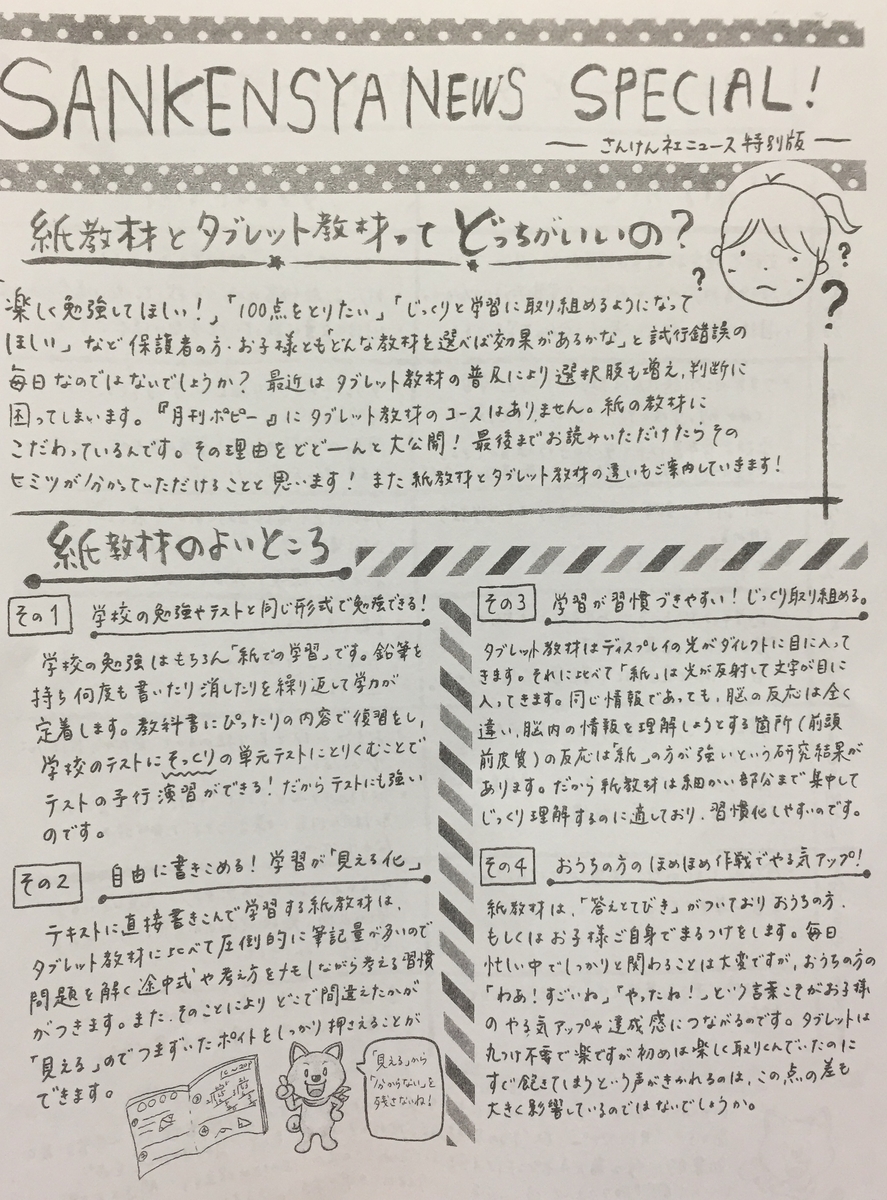 SANKENSYA NEWS SPECIAL!
さんけん社ニュース特別版
紙教材とタブレット教材ってどっちがいいの?
?
?
?
楽しく勉強してほしい!」「100点をとりたい」「じっくりと学習に取り組めるようになって
ほしい」など保護者の方・お子様とも「どんな教材を選べば効果があるかな」と試行錯誤の
毎日なのではないでしょうか? 最近はタブレット教材の普及により選択肢も増え、判断に
困ってしまいます。『月刊ポピー』にタブレット教材のコースはありません。紙の教材に
こだわっているんです。その理由をどどーんと大公開! 最後までお読みいただけたらその
ヒミツが分かっていただけることと思います! また紙教材とタブレット教材の違いもご案内していきます!
紙教材のよいところ
その1 学校の勉強やテストと同じ形式で勉強できる!
学校の勉強はもちろん「紙での学習」です。鉛筆を
持ち何度も書いたり消したりを繰り返して学力が
定着します。教科書にぴったりの内容で復習をし、
学校のテストにそっくりの単元テストにとりくむことで
テストの予行演習ができる!だからテストにも強い
のです。
その2 自由に書きこめる! 学習が「見える化」
テキストに直接書きこんで学習する紙教材は、
タブレット教材に比べて圧倒的に筆記量が多いので
問題を解く途中式や考え方をメモしながら考える習慣
がつきます。また、そのことによりどこで間違えたかが
「見える」のでつまずいたポイントをしっかり押さえることが
できます。
「見える」から
「分からない」を
残さないね!
その3 学習が習慣づきやすい! じっくり取り組める。
タブレット教材はディスプレイの光がダイレクトに目に入って
きます。それに比べて「紙」は光が反射して文字が目に
入ってきます。同じ情報であっても、脳の反応は全く
違い、脳内の情報を理解しようとする箇所(前頭
前皮質)の反応は「紙」の方が強いという研究結果が
あります。だから紙教材は細かい部分まで集中して
じっくり理解するのに適しており、習慣化しやすいのです。
その4 おうちの方のほめほめ作戦でやる気アップ!
紙教材は、「答えとてびき」がついておりおうちの方、
もしくはお子様ご自身でまるつけをします。毎日
忙しい中でしっかりと関わることは大変ですが、おうちの方の
「わあ!すごいね」「やったね!」という言葉こそがお子様
のやる気アップや達成感につながるのです。タブレットは
丸つけ不要で楽ですが初めは楽しく取りくんでいたのに
すぐ飽きてしまうという声がきかれるのは、この点の差も
大きく影響しているのではないでしょうか。